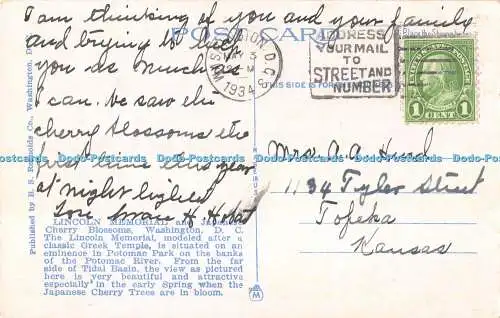 I am thinking of you and your family
and trying to help
you as much as
I can. We saw the
cherry blossoms the
first time this year
at night lighted
Love
POST CARD
WASHINGTON, D.C. 8
1934
ADDRESS
YOUR MAIL
TO
STREET AND
NUMBER
THIS SIDE FOR
1 CENT 1
Mrs. A. A. Hurd
1134 Tyler Street
Topeka
Kansas
LINCOLN MEMORIAL and Japanese
Cherry Blossoms, Washington, D. C.
The Lincoln Memorial, modeled after a
classic Greek Temple, is situated on an
eminence in Potomac Park on the banks
of the Potomac River. From the far
side of Tidal Basin, the view as pictured
here is very beautiful and attractive
especially in the early Spring when the
Japanese Cherry Trees are in bloom.
Published by B. S. Reynolds Co., Washington, D. C.
Postcards-Docs Postcards-Docs Postcards-Docs Postcards-Docs Postcards-Docs